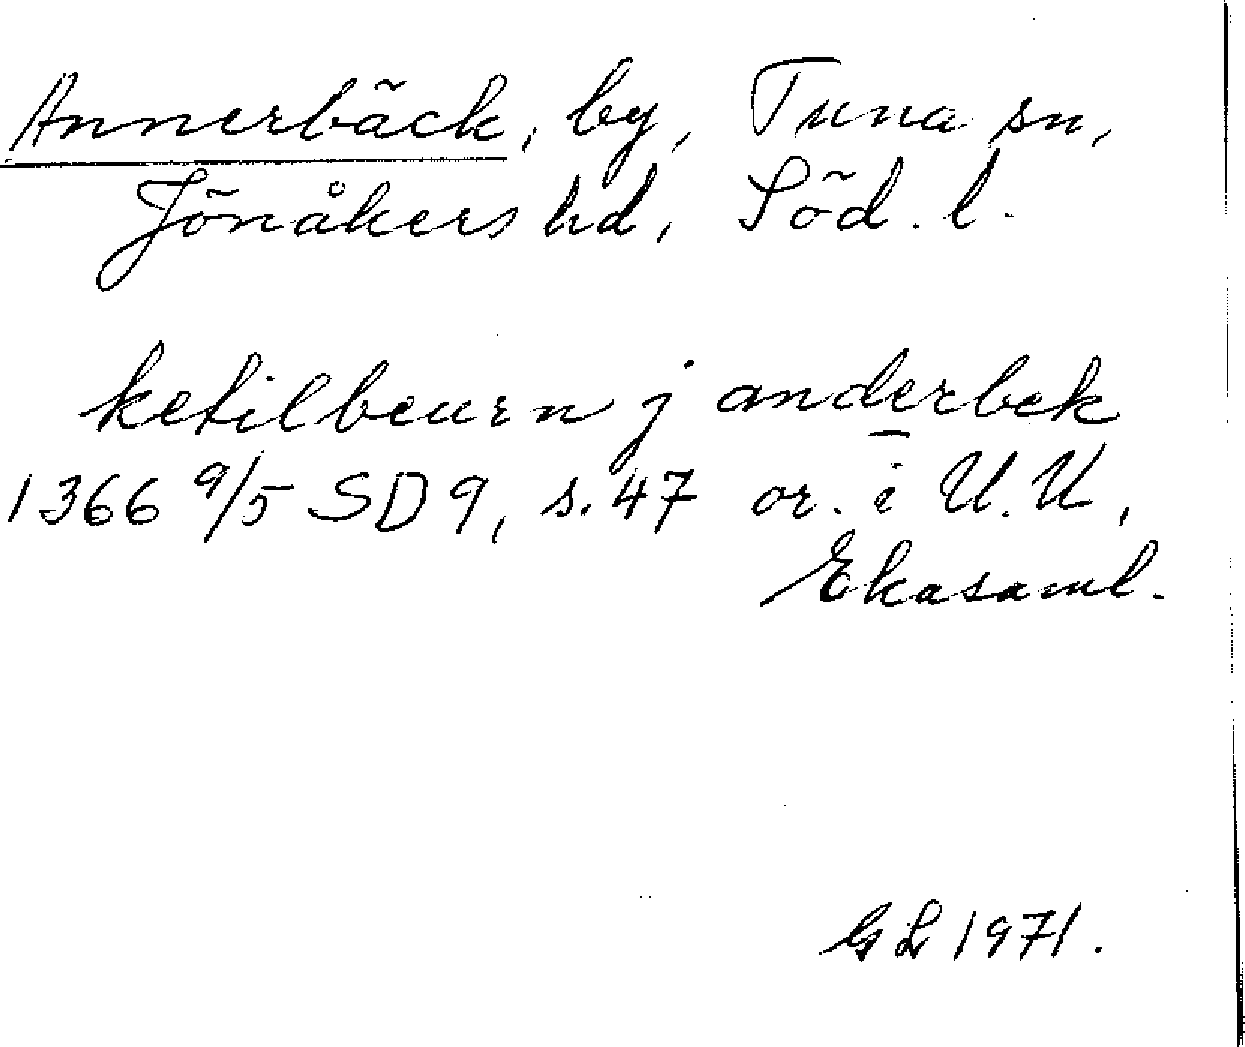 Annerbäck, by, Tuna sn,
Jönåkers hd, Söd. l.
ketilbeurn j anderbek
1366 9/5 SD 9, s. 47 or. i U.U,
Ekasaml.
G L 1971.